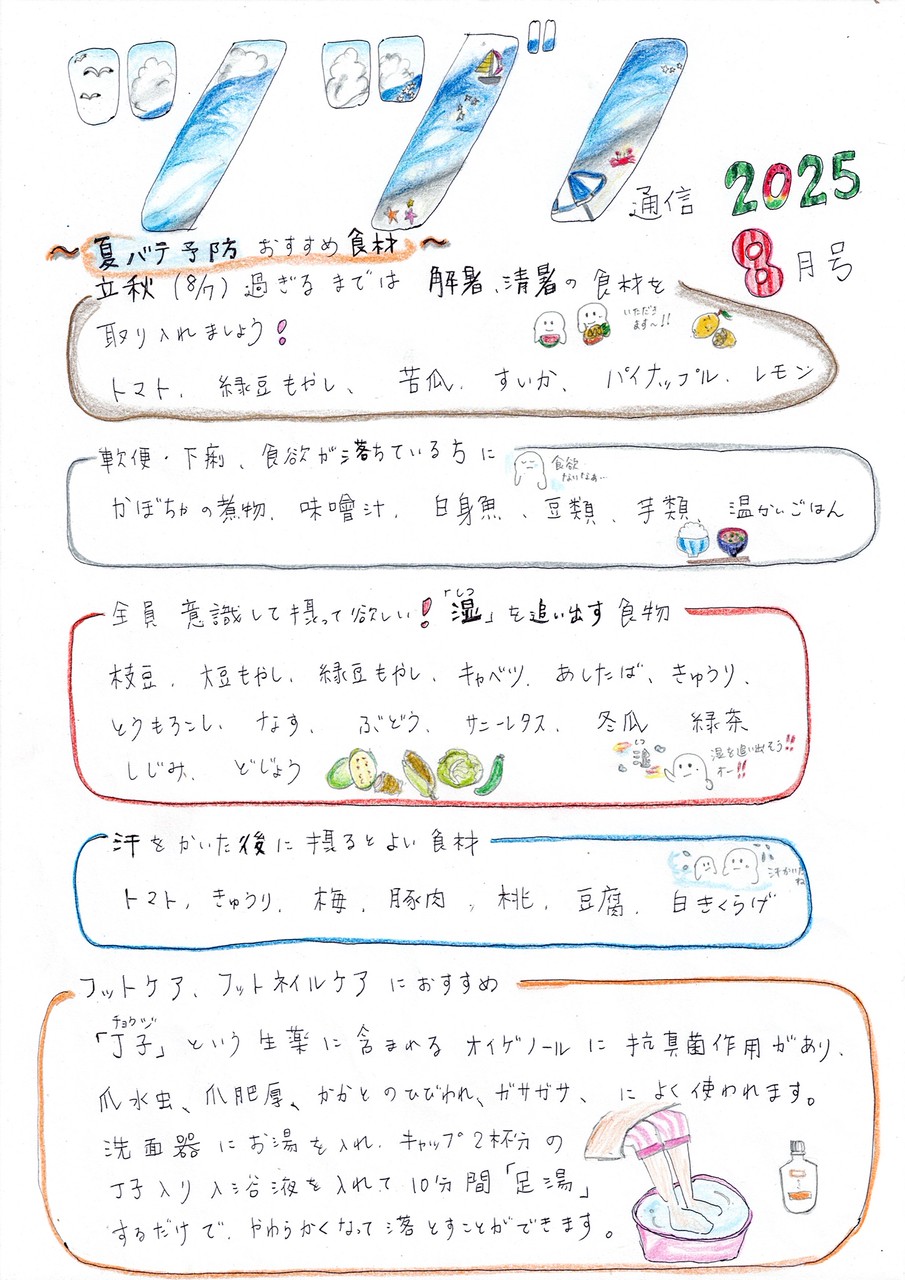 ツヅノ通信 2025
8月号
夏バテ予防 おすすめ食材
立秋(8/7)過ぎるまでは 解暑、清暑の食材を
取り入れましょう!
いただき
ます〜!!
トマト、緑豆もやし、苦瓜、すいか、パイナップル、レモン
軟便・下痢、食欲が落ちている方に
食欲
ないなぁ…
かぼちゃの煮物、味噌汁、白身魚、豆類、芋類、温かいごはん
全員 意識して摂って欲しい!「湿」を追い出す食物
しつ
枝豆、大豆もやし、緑豆もやし、キャベツ、あしたば、きゅうり、
とうもろこし、なす、ぶどう、サニーレタス、冬瓜 緑茶
しじみ、どじょう
しつ
湿
湿を追い出そう!!
オー!!
汗をかいた後に摂るとよい食材
汗かいた
ね
トマト、きゅうり、梅、豚肉、桃、豆腐、白きくらげ
フットケア、フットネイルケアにおすすめ
チョウジ
「丁子」という生薬に含まれるオイゲノールに抗真菌作用があり、
爪水虫、爪肥厚、かかとのひびわれ、ガサガサ、によく使われます。
洗面器にお湯を入れ、キャップ2杯分の
丁子入り入浴液を入れて10分間「足湯」
するだけで、やわらかくなって落とすことができます。